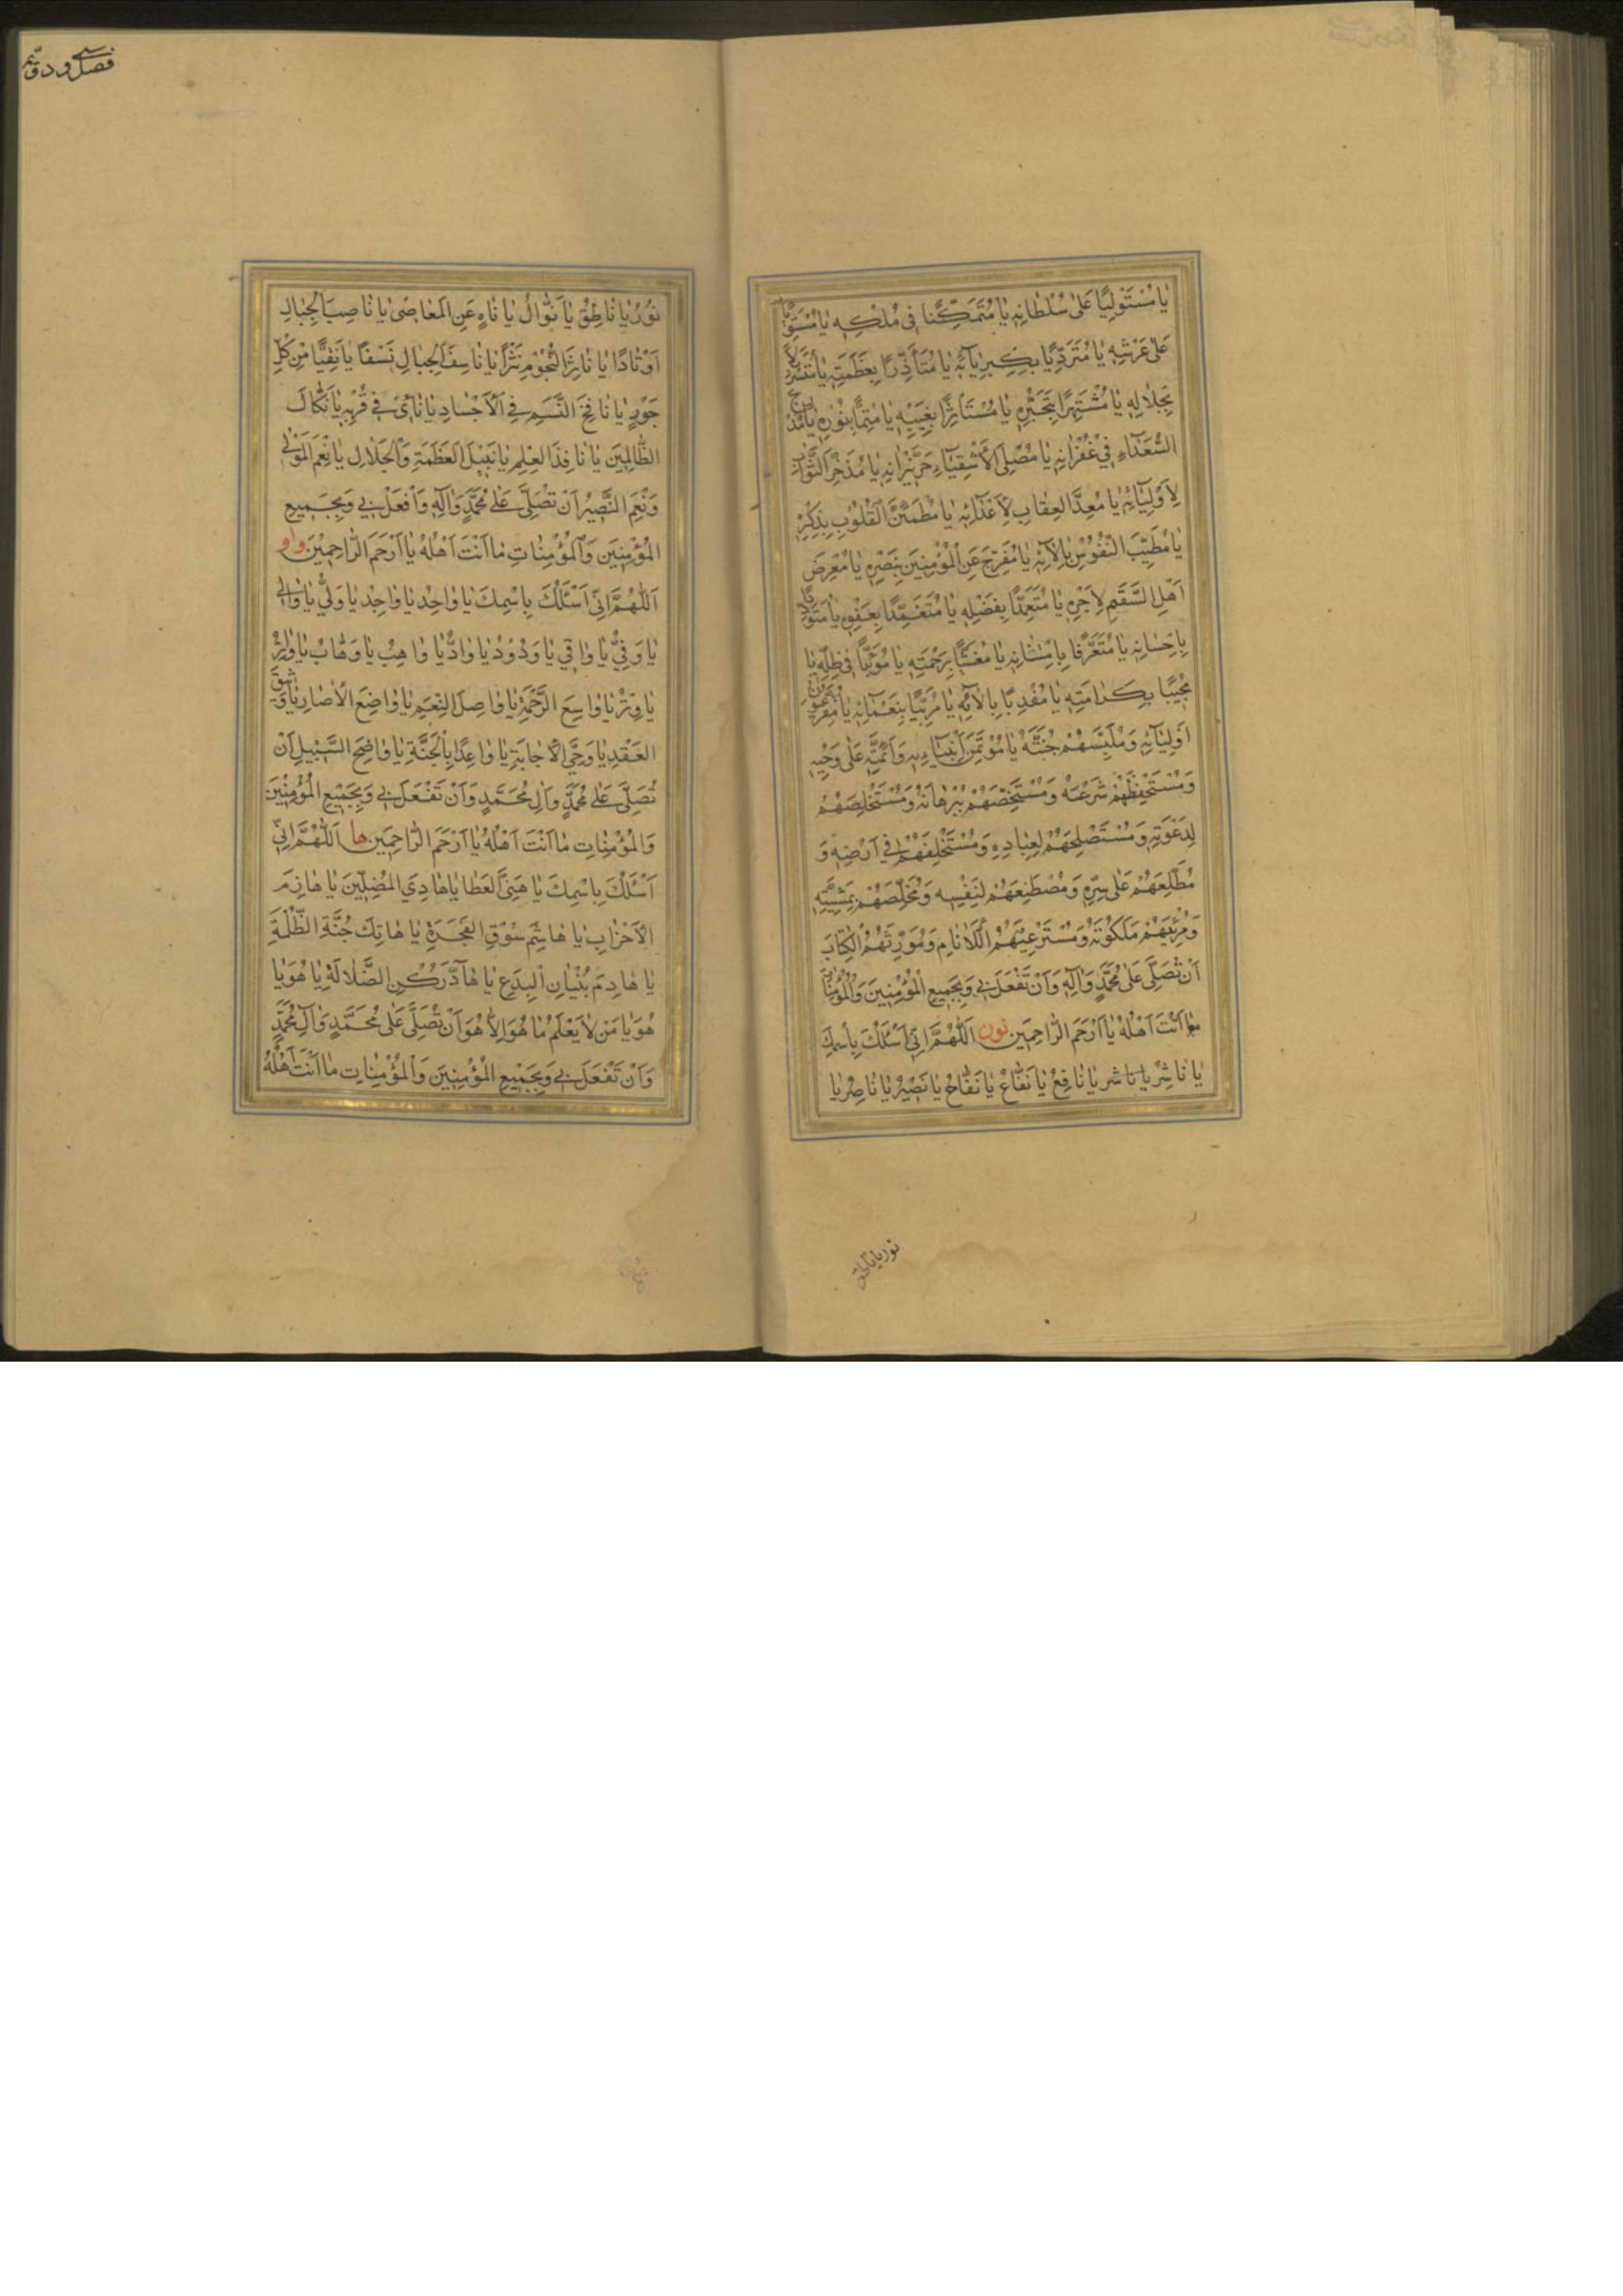 يٰا مُسْتَوْلِيًا عَلىٰ سُلْطانِهِ يٰا مُتَمَكِّنًا فى مُلْكِهِ يٰا مُسْتَوِيًا
عَلىٰ عَرْشِهِ يٰا مُتَرَدِّيًا بِكِبْرِيٰآئِهِ يٰا مُتَأَزِّرًا بِعَظَمَتِهِ يٰا مُتَسَرْبِلاً
بِجَلالِهِ يٰا مُشْتَهِرًا بِتَجَبُّرِهِ يٰا مُسْتَأثِرًا بِغَيْبِهِ يٰا مُتِمًّا بِنُورِهِ يٰا مُدْرِجَ
السُّعَدٰآءِ فِي غُفْرٰانِهِ يٰا مُصْلِىَ الأَشْقِيٰآءِ حَرَّ نيٰرانِهِ يٰا مُدَّخِرَ الثَّوٰابِ
لِأَوْلِيٰآئِهِ يٰا مُعِدَّ العِقٰابِ لِأَعْدٰآئِهِ يٰا مُطْمَئِنَّ الْقُلُوْبِ بِذِكْرِهِ
يٰا مُطَيِّبَ النُّفُوْسِ بِاٰلآئِهِ يٰا مُفَرِّجَ عَنِ الْمُؤْمِنِيَن بِنَصْرِهِ يٰا مُعْرِضَ
اَهْلِ السَّقَمِ لِأَجْرِهِ يٰا مُتَعَمِّدًا بِفَضْلِهِ يٰا مُتَغَمِّدًا بِعَفْوِهِ يٰا مُتَوَدِّدًا
بِاِحْسٰانِهِ يٰا مُتَعَرِّفًا بِامْتِنٰانِهِ يٰا مُغَشِّيًا بِرَحْمَتِهِ يٰا مُؤوِيًا فى ظِلِّهِ يٰا
بِكَرٰامَتِهِ يٰا بِاٰلآئِهِ يٰا مُرَبِّيًا بِنَعْمٰآئِهِ يٰا
اَوْلِيٰآئِهِ وَمُلَبِّسَهُمْ جُنَّتَهُ يٰا مُؤْتَمِنَ اَنْبِيٰآءِهِ وَاَئِمَّتِهِ عَلىٰ وَحْيِهِ
وَمُسْتَحْفِظَهُمْ شَرْعَهُ وَمُسْتَخِصَّهُمْ بِبُرْهٰانِهِ وَمُسْتَخْلِصَهُمْ
لِدَعْوَتِهِ وَمُسْتَصْلِحَهُمْ لِعِبٰادِهِ وَمُسْتَخْلِفَهُمْ فِي اَرْضِهِ وَ
مُطَّلِعَهُمْ عَلىٰ سِرِّهِ وَمُصْطَنِعَهُمْ لِنَفْسِهِ وَمُخَلِّصَهُمْ بِمَشِيَّتِهِ
وَمُرِئَيهُمْ مَلَكُوتَهُ وَمُسْتَرْعِيَهُمُ الْاَنٰامِ وَمُوَرِّثَهُمُ الْكِتٰابَ
اَنْ تُصَلِّىَ عَلىٰ مُحَمَّدٍ وَاٰلِهِ وَاَنْ تَفْعَلَ بِي وَبِجَمِيعِ الْمُؤْمِنِينَ وَالْمُؤْمِنٰاتِ
مٰا اَنْتَ اَهْلُهُ يٰا اَرْحَمَ الرّٰاحِمِينَ نون اَللّٰهُمَّ اِنّى اَسْئَلُكَ بِاسْمِكَ
يٰا نٰاشِرُ يا ناشر يٰا نٰافِعُ يٰا نَفّٰاعُ يٰا نَفّٰاحُ يٰا نَصِيْرُ يٰا نٰاصِرُ يٰا
نور يا ناطق
نُوْرُ يٰا نٰاطِقُ يٰا نَوّٰالُ يٰا نٰاهٍ عَنِ الْمَعٰاصى يٰا نٰاصِبَ الْجِبٰالِ
اَوْتٰادًا يٰا نٰاثِرَ النُّجُوْمِ نَثْرًا يٰا نٰاسِفَ الْجِبٰالِ نَسْفًا يٰا نَقِيًّا مِنْ كُلِّ
جَوْرٍ يٰا نٰافِخَ النَّسَمِ فِي الْاَجْسٰادِ يٰا نٰائىَ فِى قُرْبِهِ يٰا نَكّٰالَ
الظّٰالِمِيَن يٰا نٰافِذَ العِلْمِ يٰا نَبِيْلَ الْعَظَمَةِ وَالْجَلٰالِ يٰا نِعْمَ الْمَوْلىٰ
وَنِعْمَ النَّصِيْرُ اَنْ تُصَلِّىَ عَلىٰ مُحَمَّدٍ وَاٰلِهِ وَافْعَلْ بي وَبِجَمِيعِ
الْمُؤْمِنِيَن وَالْمُؤْمِنٰاتِ مٰا اَنْتَ اَهْلُهُ يٰا اَرْحَمَ الرّٰاحِمِيْنَ واو
اَللّٰهُمَّ اِنّى اَسْئَلُكَ بِاسْمِكَ يٰا وٰاحِدُ يٰا وٰاجِدُ يٰا وَلىُّ يٰا وٰالى
يٰا وَفِىُّ يٰا وٰاقي يٰا وَدُوْدُ يٰا وٰادُّ يٰا وٰاهِبُ يٰا وَهّٰابُ يٰا وٰارِثُ
يٰا وِتْرُ يٰا وٰاسِعَ الرَّحْمَةِ يٰا وٰاصِلَ النِّعَمِ يٰا وٰاضِعَ الْاٰصٰارِ يٰا وَثِيقَ
العَقْدِ يٰا وَحِىَّ الْاِجٰابَةِ يٰا وٰاعِدًا بِالْجَنَّةِ يٰا وٰاضِحَ السَّبِيْلِ اَنْ
تُصَلِّىَ عَلىٰ مُحَمَّدٍ وَاٰلِ مُحَمَّدٍ وَاَنْ تَفْعَلَ بي وَبِجَمِيْعِ الْمُؤْمِنِيْنَ
وَالْمُؤْمِنٰاتِ مٰا اَنْتَ اَهْلُهُ يٰا اَرْحَمَ الرّٰاحِمِيَن ها اَللّٰهُمَّ اِنّى
اَسْئَلُكَ بِاسْمِكَ يٰا هَنِىَّ الْعَطٰا يٰا هٰادِيَ الْمُضِلّيَن يٰا هٰازِمَ
الْاَحْزٰابِ يٰا هٰاشِمَ سُوْقِ الفَجَرَةِ يٰا هٰاتِكَ جُنَّةِ الظَّلَمَةِ
يٰا هٰادِمَ بُنْيٰانِ البِدَعِ يٰا هٰآدَّ رُكْنِ الضَّلٰالَةِ يٰا هُوَ يٰا
هُوَ يٰا مَنْ لٰا يَعْلَمُ مٰا هُوَ اِلّٰا هُوَ اَنْ تُصَلِّىَ عَلىٰ مُحَمَّدٍ وَاٰلِ مُحَمَّدٍ
وَاَنْ تَفْعَلَ بي وَبِجَمِيْعِ الْمُؤْمِنِيَن وَالْمُؤْمِنٰاتِ مٰا اَنْتَ اَهْلُهُ